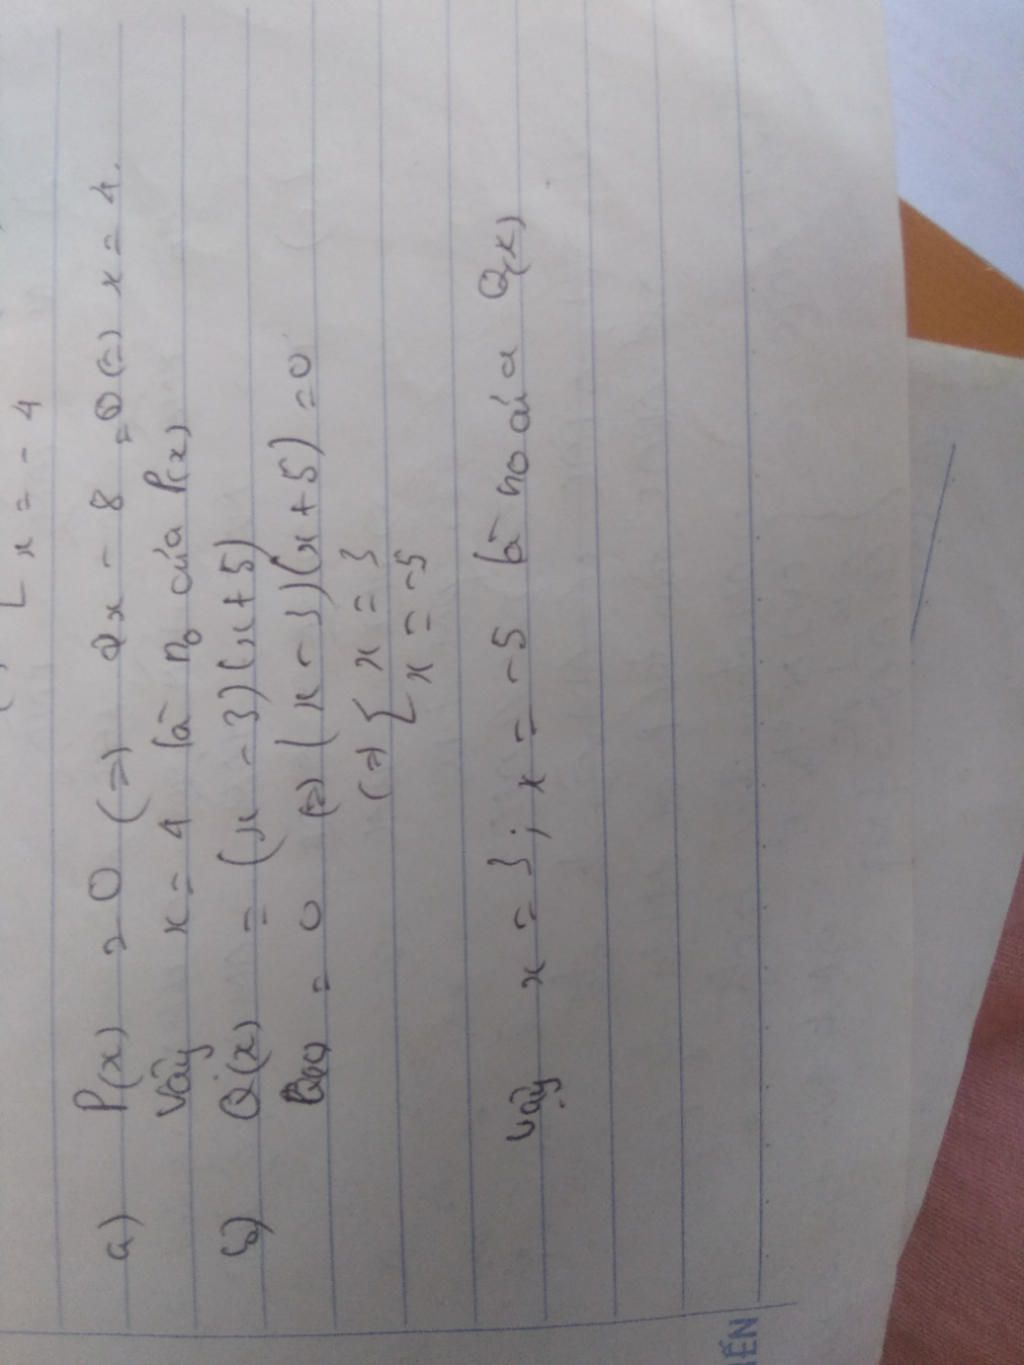 [ x = - 4
a) P(x) = 0 (=) 2x - 8 = 0 (=) x = 4.
Vậy x = 4 là no của P(x)
b) Q(x) = (x - 3)(x + 5)
Q(x) = 0 (=) (x - 3)(x + 5) = 0
(=) [ x = 3
x = -5
Vậy x = 3 ; x = -5 là no của Q(x)
ẾN